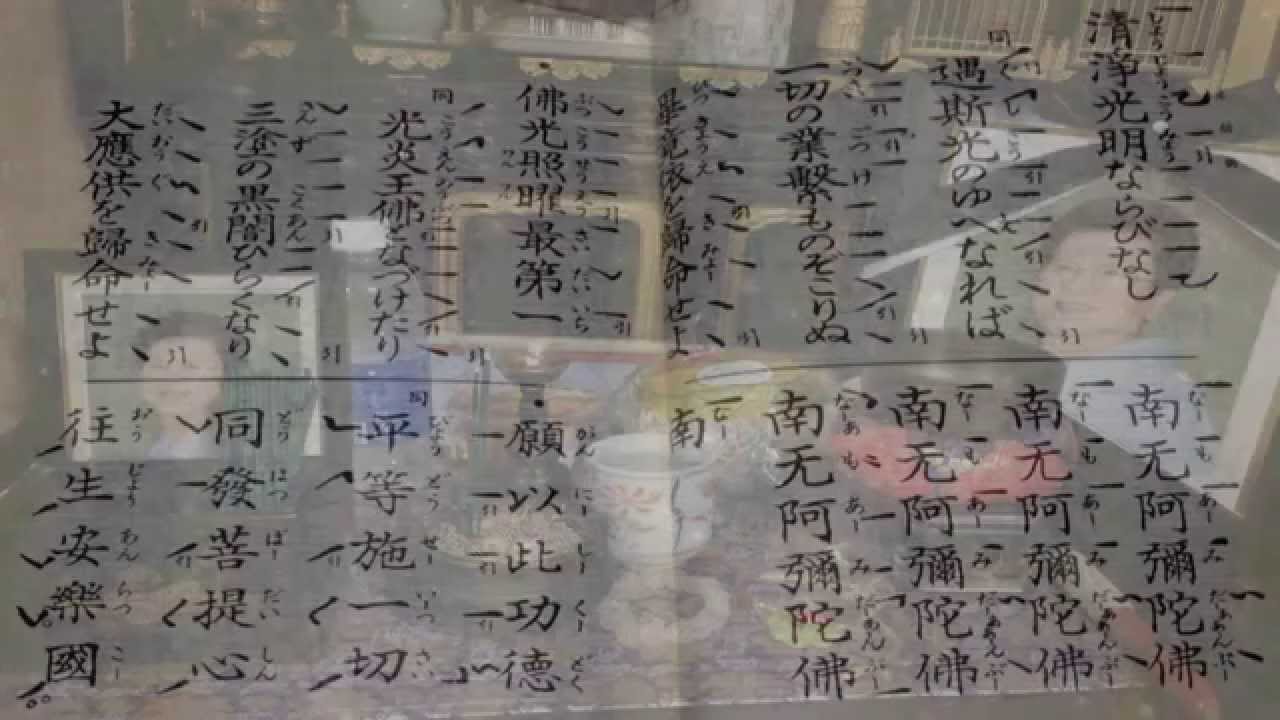 清淨光明ならびなし
遇斯光のゆへなれば
一切の業繫ものぞこりぬ
畢竟依を歸命せよ
佛光照曜最第一
光炎王佛となづけたり
三塗の黒闇ひらくなり
大應供を歸命せよ
南无阿彌陀佛
南无阿彌陀佛
南无阿彌陀佛
南无阿彌陀佛
南
願以此功德
平等施一切
同發菩提心
往生安樂國